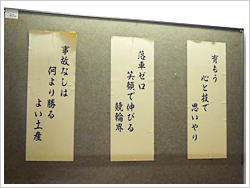 育もう
心と技で
思いやり
落車ゼロ
笑顔で伸びる
競輪界
事故なしは
何より勝る
よい土産